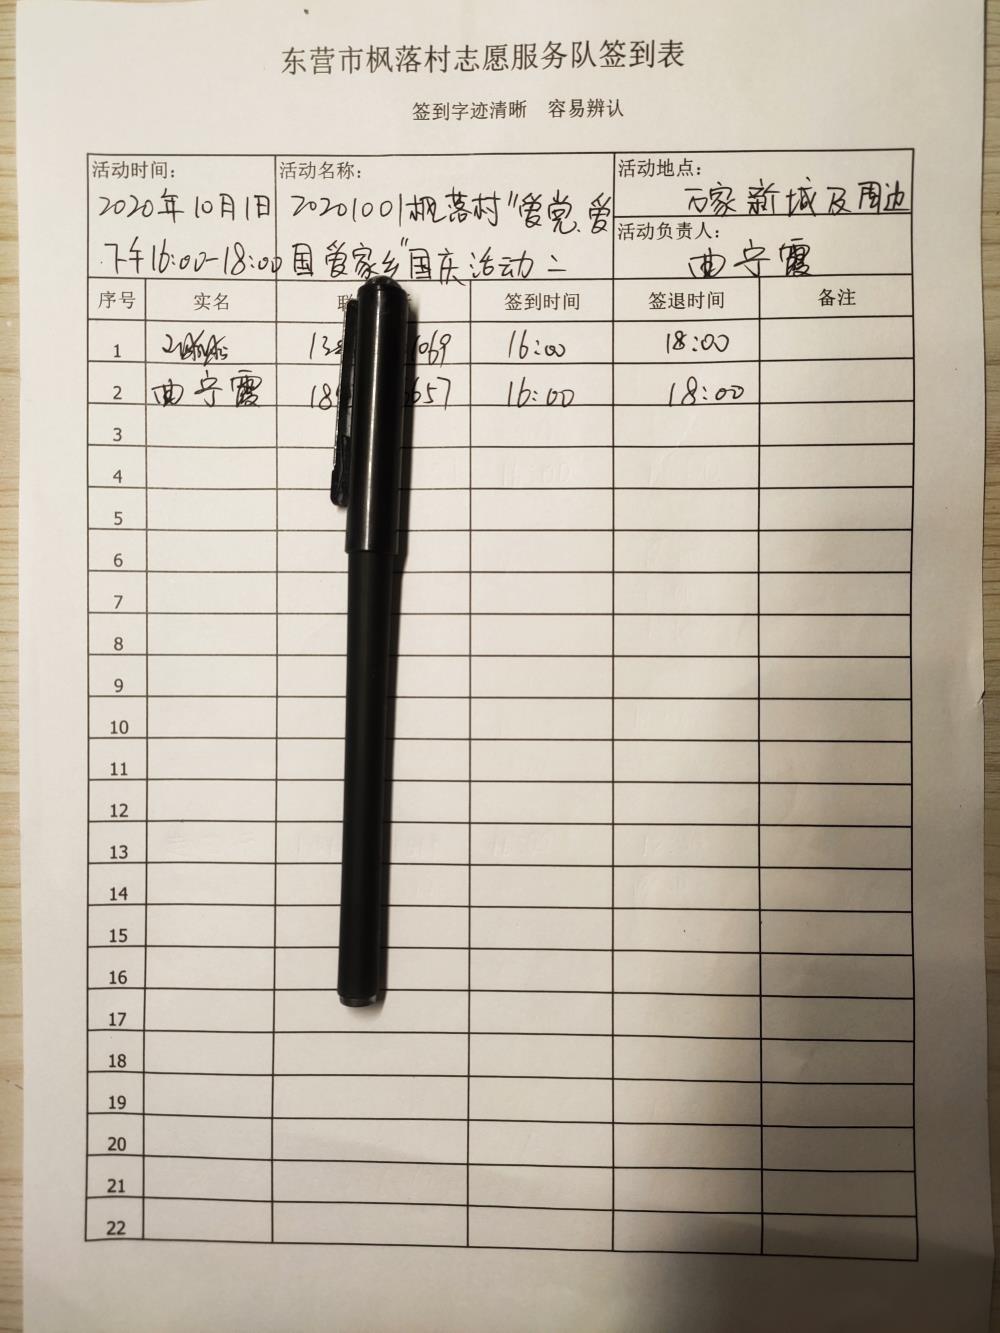 东营市枫落村志愿服务队签到表
签到字迹清晰 容易辨认
活动时间: 活动名称: 活动地点:
2020年10月1日 20201001枫落村"爱党、爱 万家新城及周边
下午16:00-18:00 国爱家乡"国庆活动二 活动负责人:
曲宁霞
序号 实名 签到时间 签退时间 备注
1 16:00 18:00
2 曲宁霞 16:00 18:00
3
4
5
6
7
8
9
10
11
12
13
14
15
16
17
18
19
20
21
22